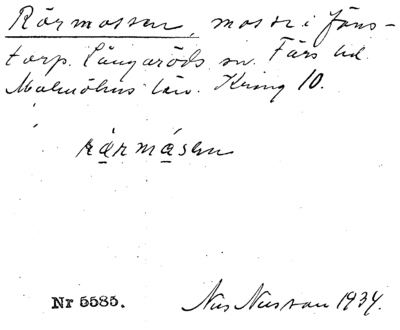 Rörmossen, mosse i Jäns-
torp. Långaröds sn. Färs hd.
Malmöhus län. Kring 10.
rärmåsen
Nr 5585. Nils Nilsson 1934.